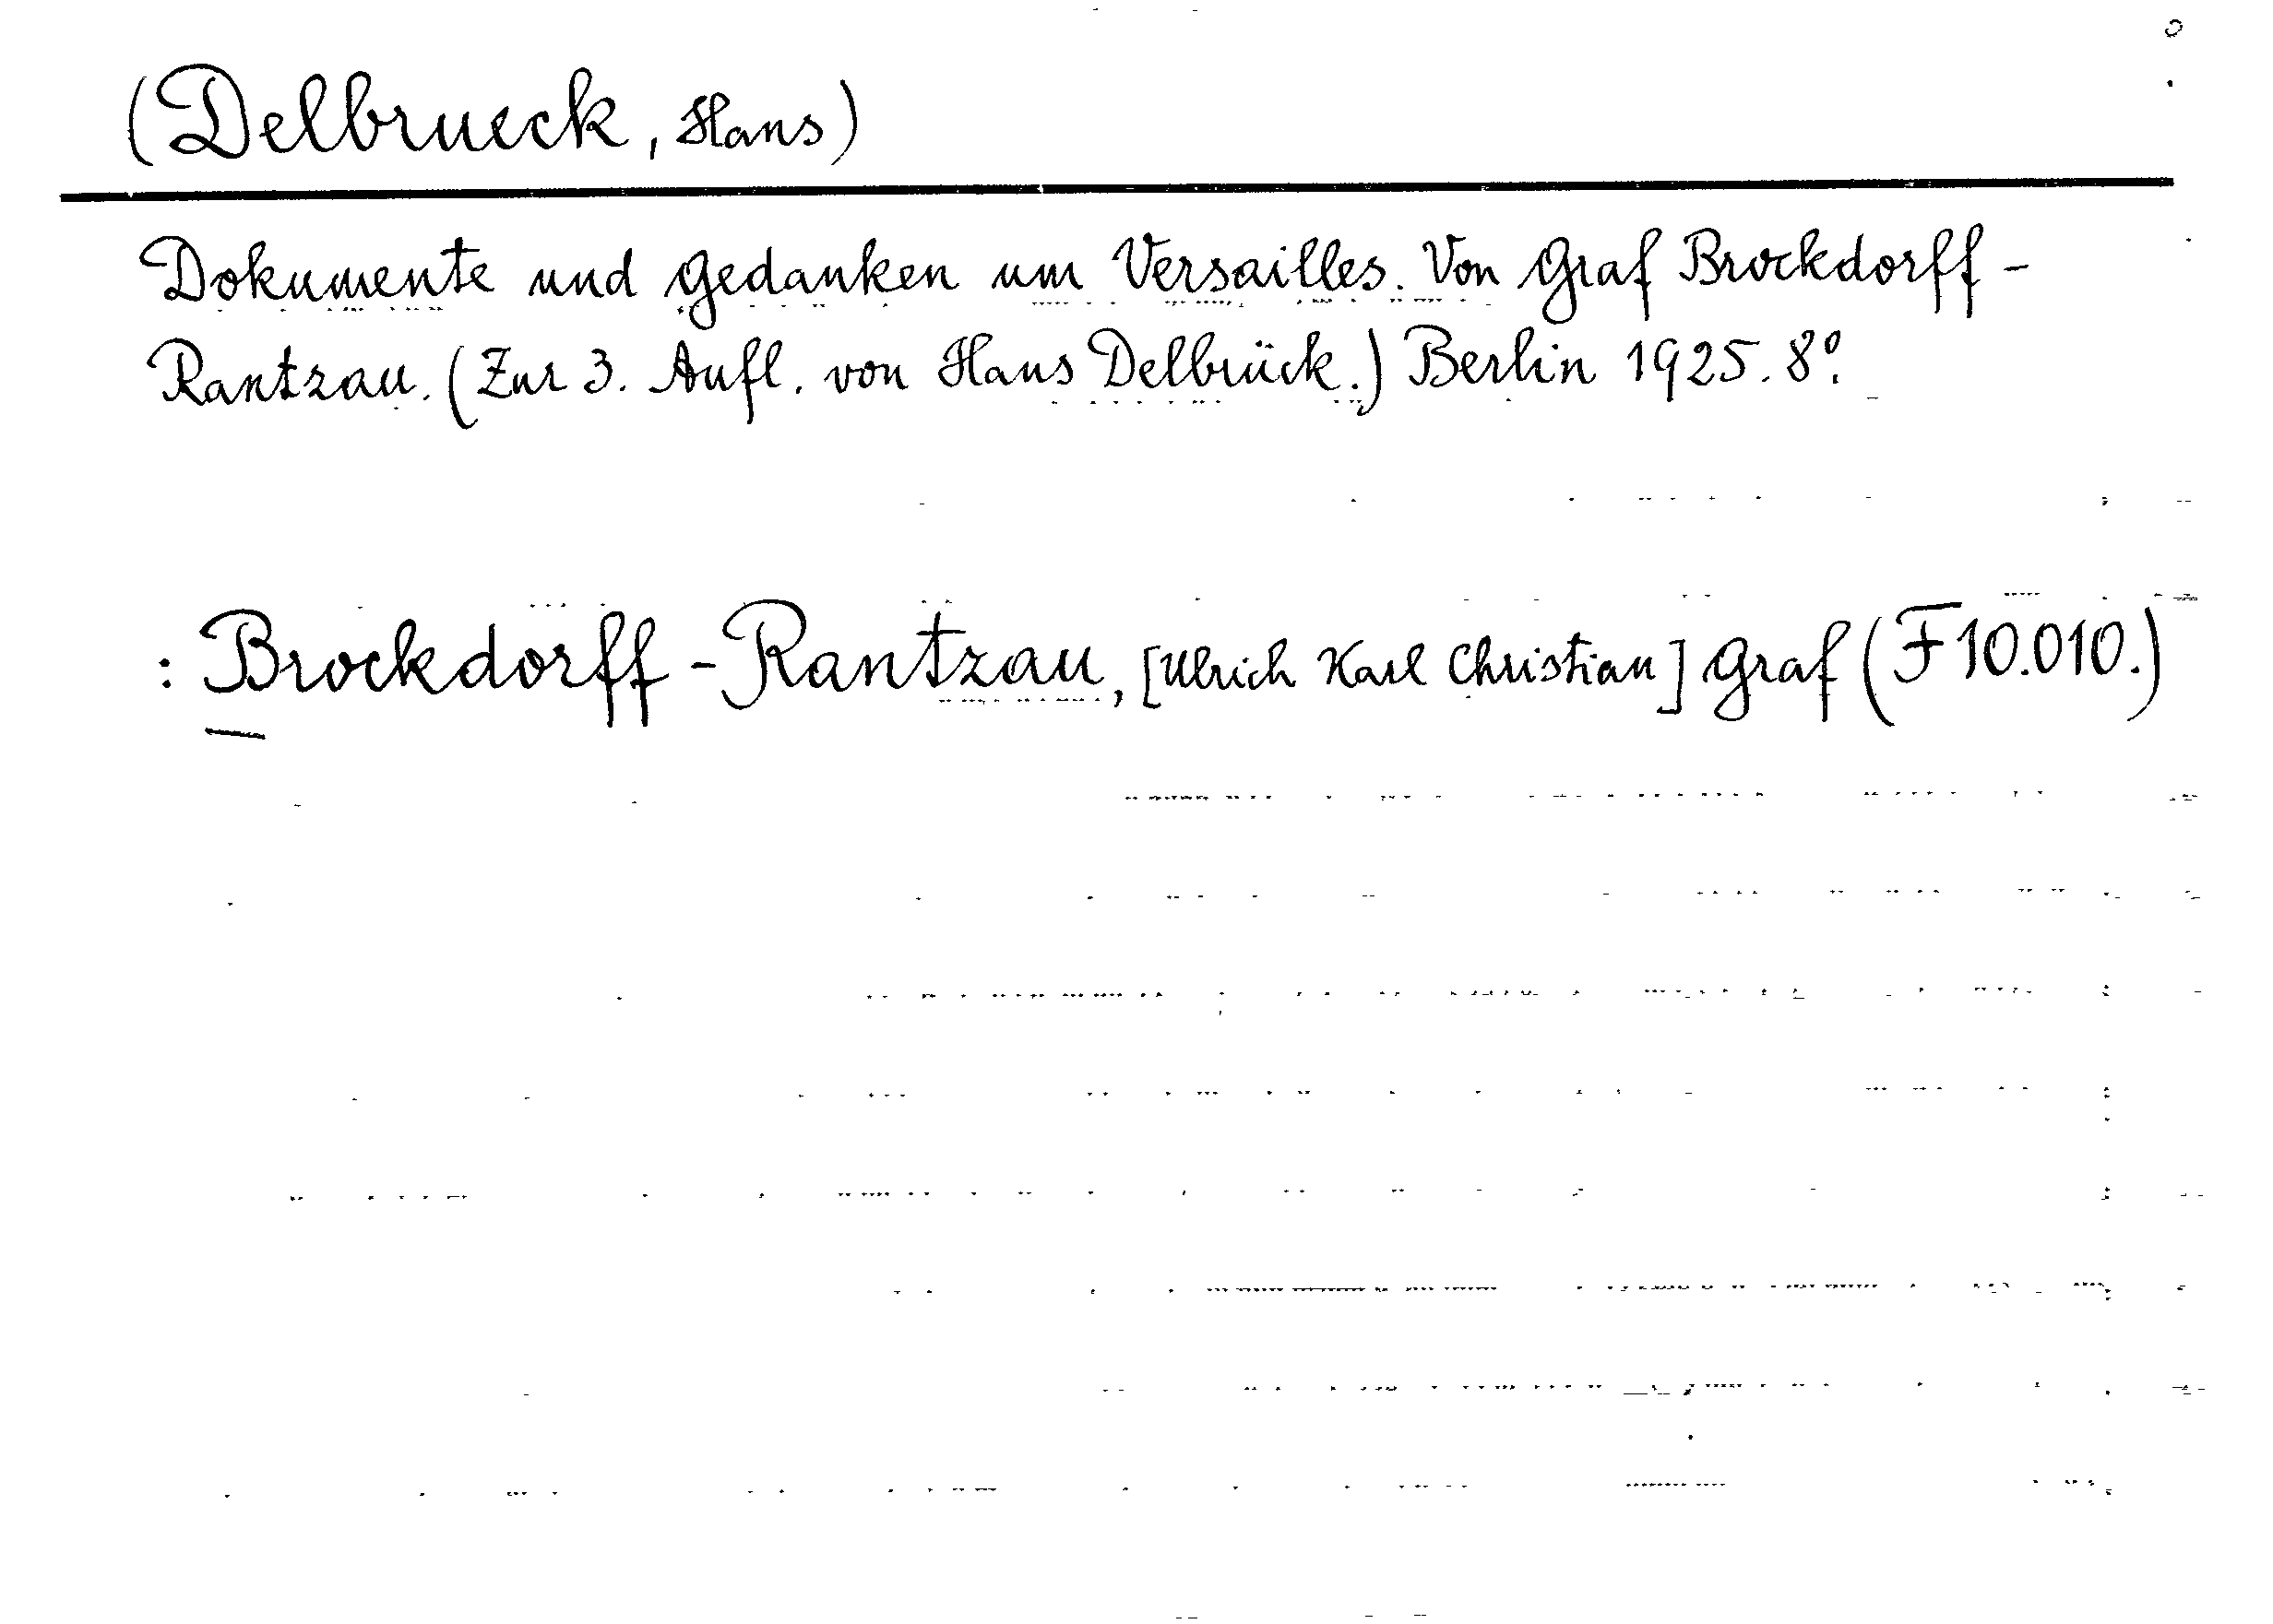 (Delbrueck, Hans)
Dokumente und Gedanken um Versailles. Von Graf Brockdorff-
Rantzau. (Zur 3. Aufl. von Hans Delbrück.) Berlin 1925. 8°.
: Brockdorff-Rantzau, [Ulrich Karl Christian] Graf (F10.010.)